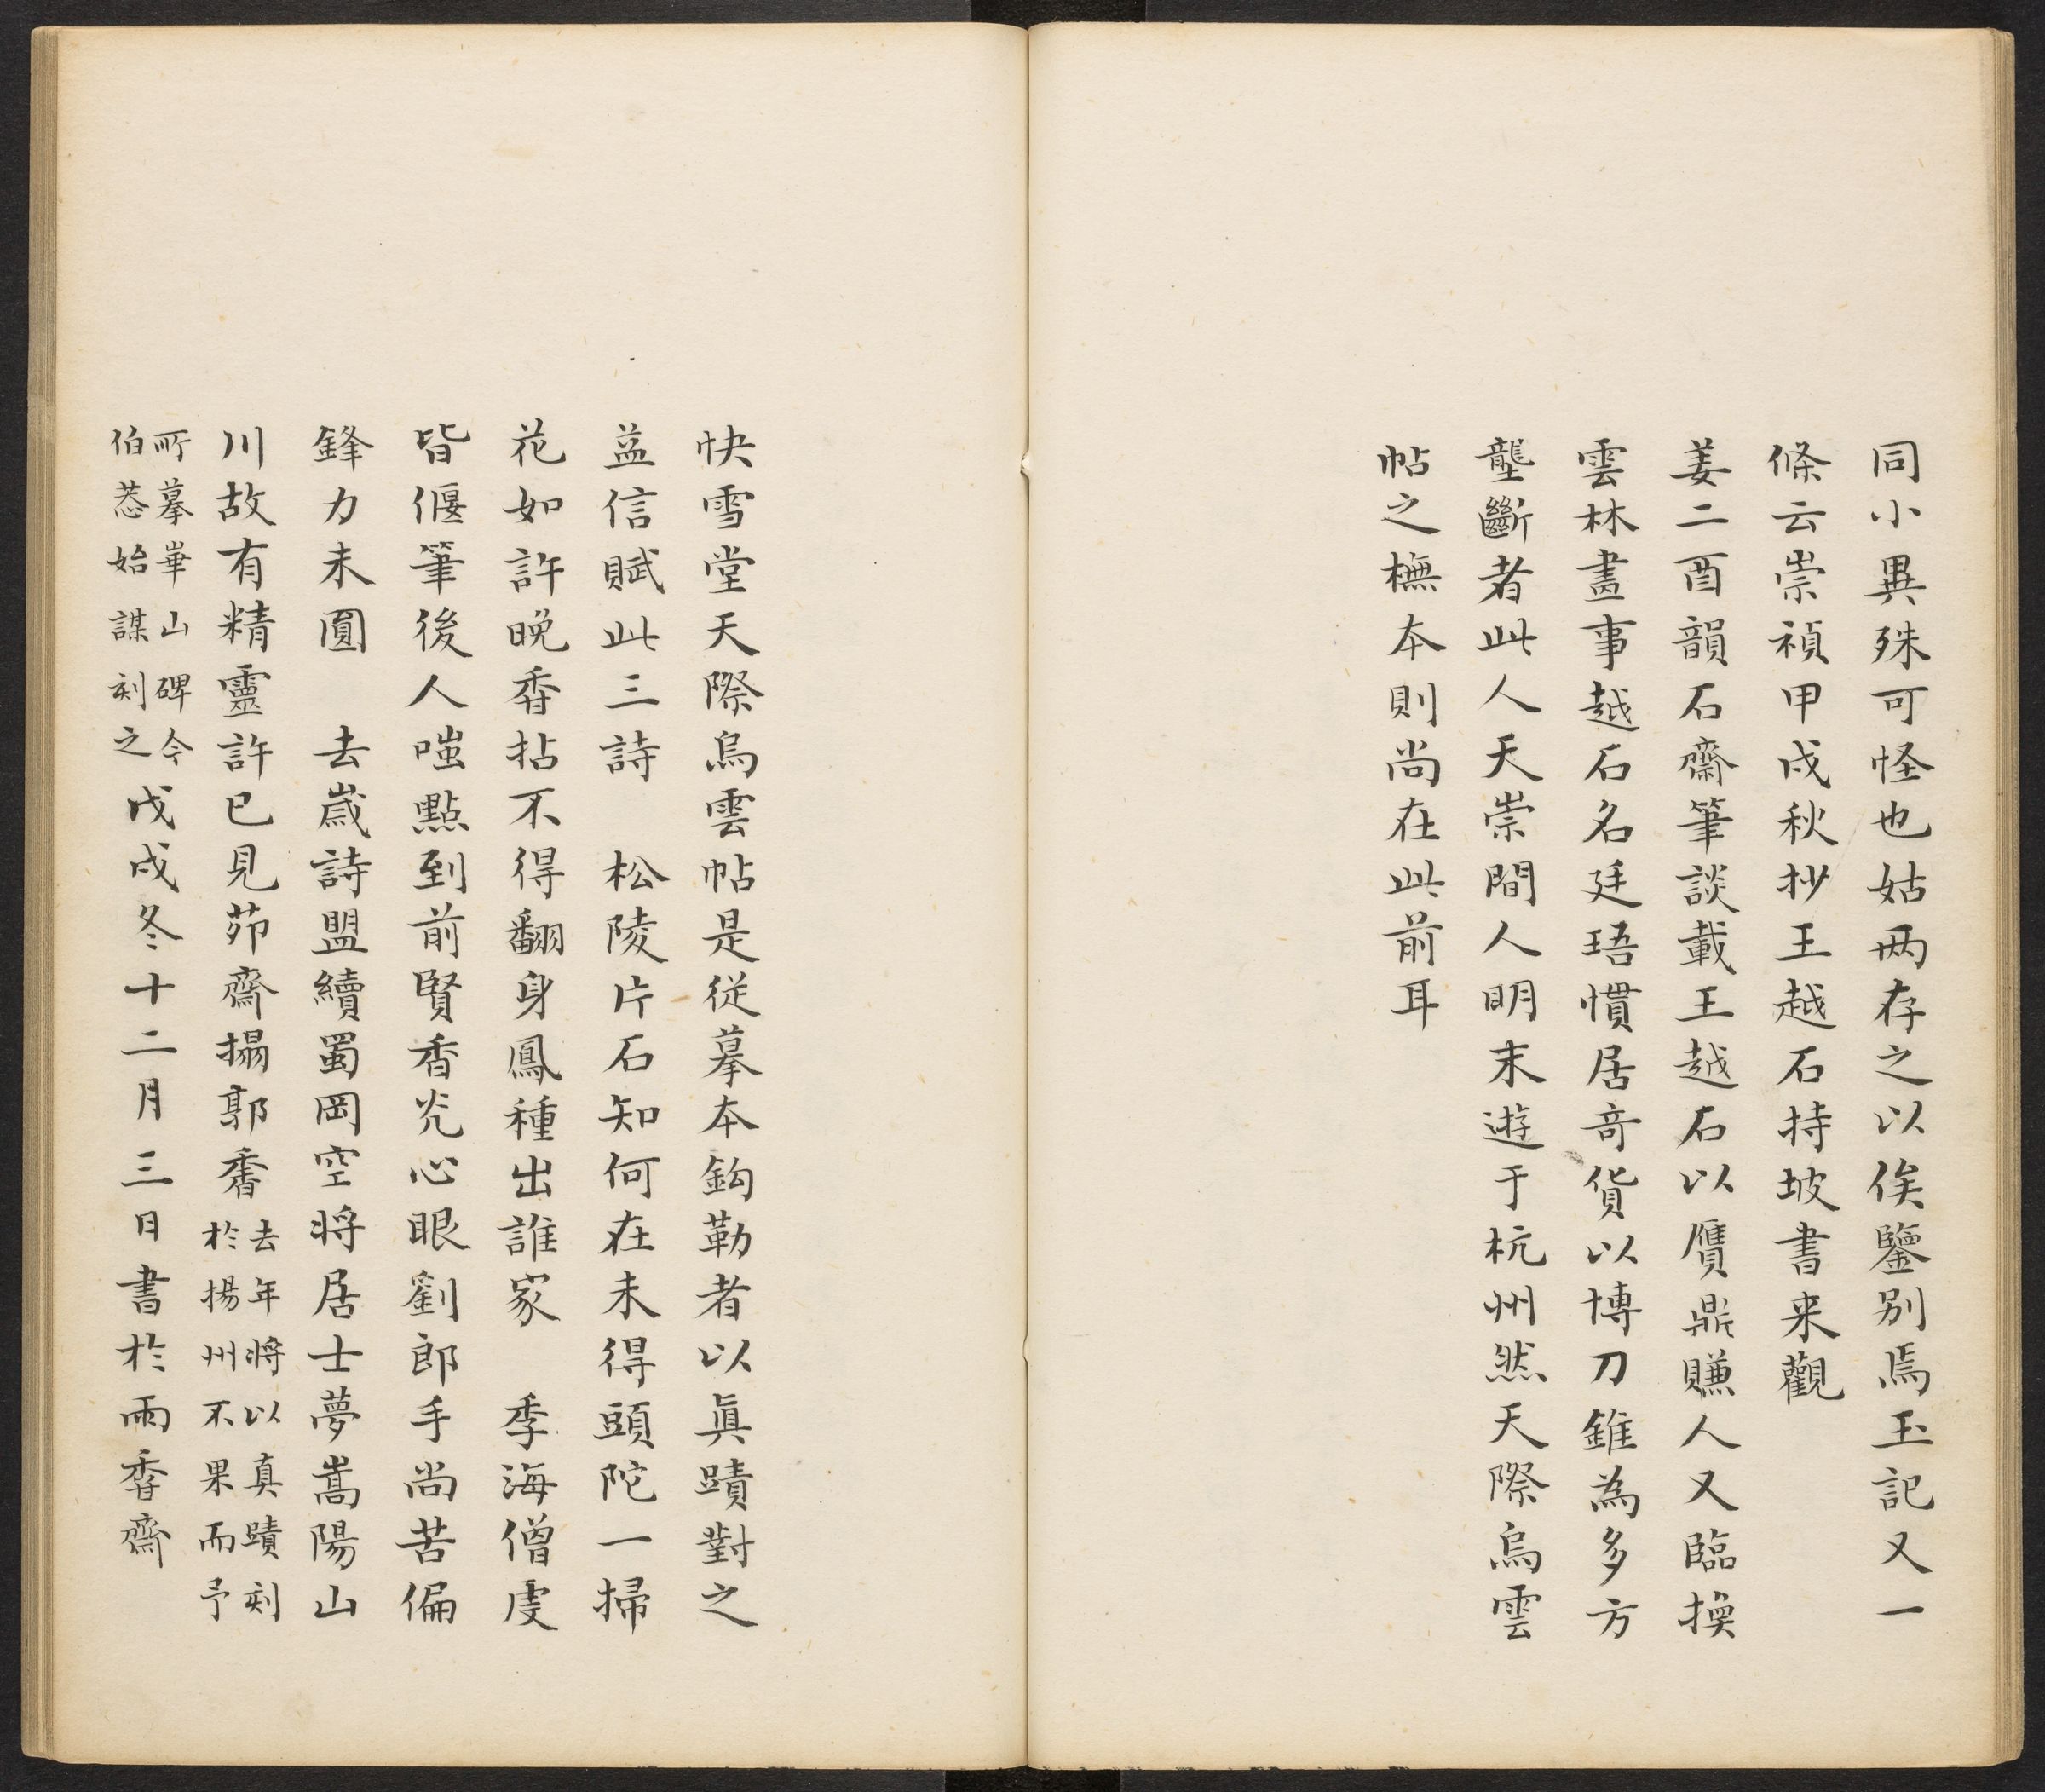 同小異殊可怪也姑两存之以俟鑒别焉玉記又一
條云崇禎甲戌秋抄王越石持坡書来觀
姜二酉韻石齋筆談載王越石以贋鼎賺人又臨換
雲林畫事越石名廷珸慣居奇貨以博刀錐為多方
壟斷者此人天崇間人明末遊于杭州然天際烏雲
帖之橅本則尚在此前耳
快雪堂天際烏雲帖是從摹本鈎勒者以真蹟對之
益信賦此三詩　松陵片石知何在未得頭陀一掃
花如許晚香拈不得翻身鳳種出誰家　季海僧虔
皆偃筆後人嗤點到前賢香光心眼劉郎手尚苦偏
鋒力未圓　去歲詩盟續蜀岡空将居士夢嵩陽山
川故有精靈許已見茆齋搨郭香
去年將以真蹟刻
於揚州不果而予
所摹崋山碑今
伯恭始謀刻之
戊戌冬十二月三日書於雨香齋